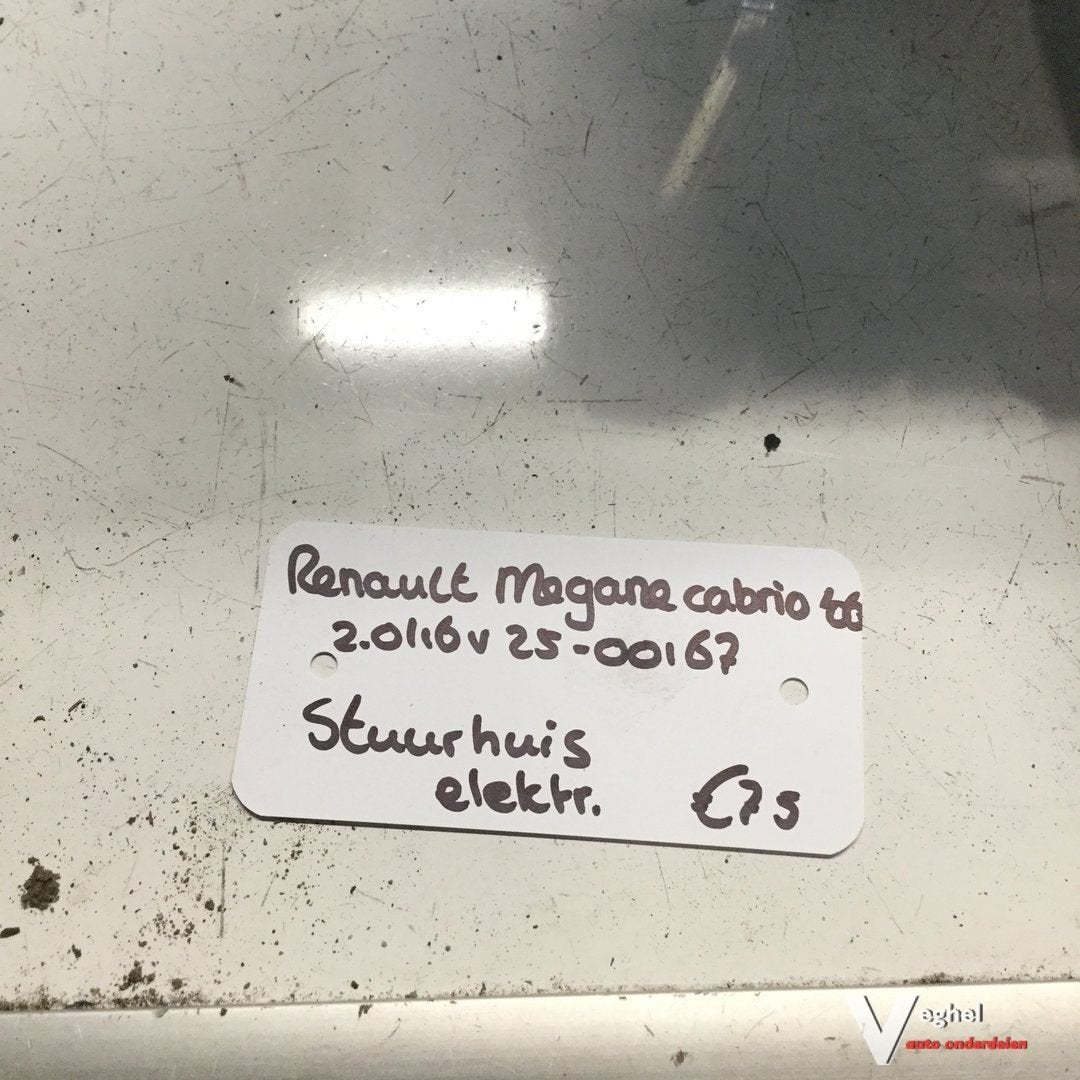 Renault Megane cabrio
2.0/16v 25-00167
Stuurhuis
elektr. €75
Veghel
auto onderdelen